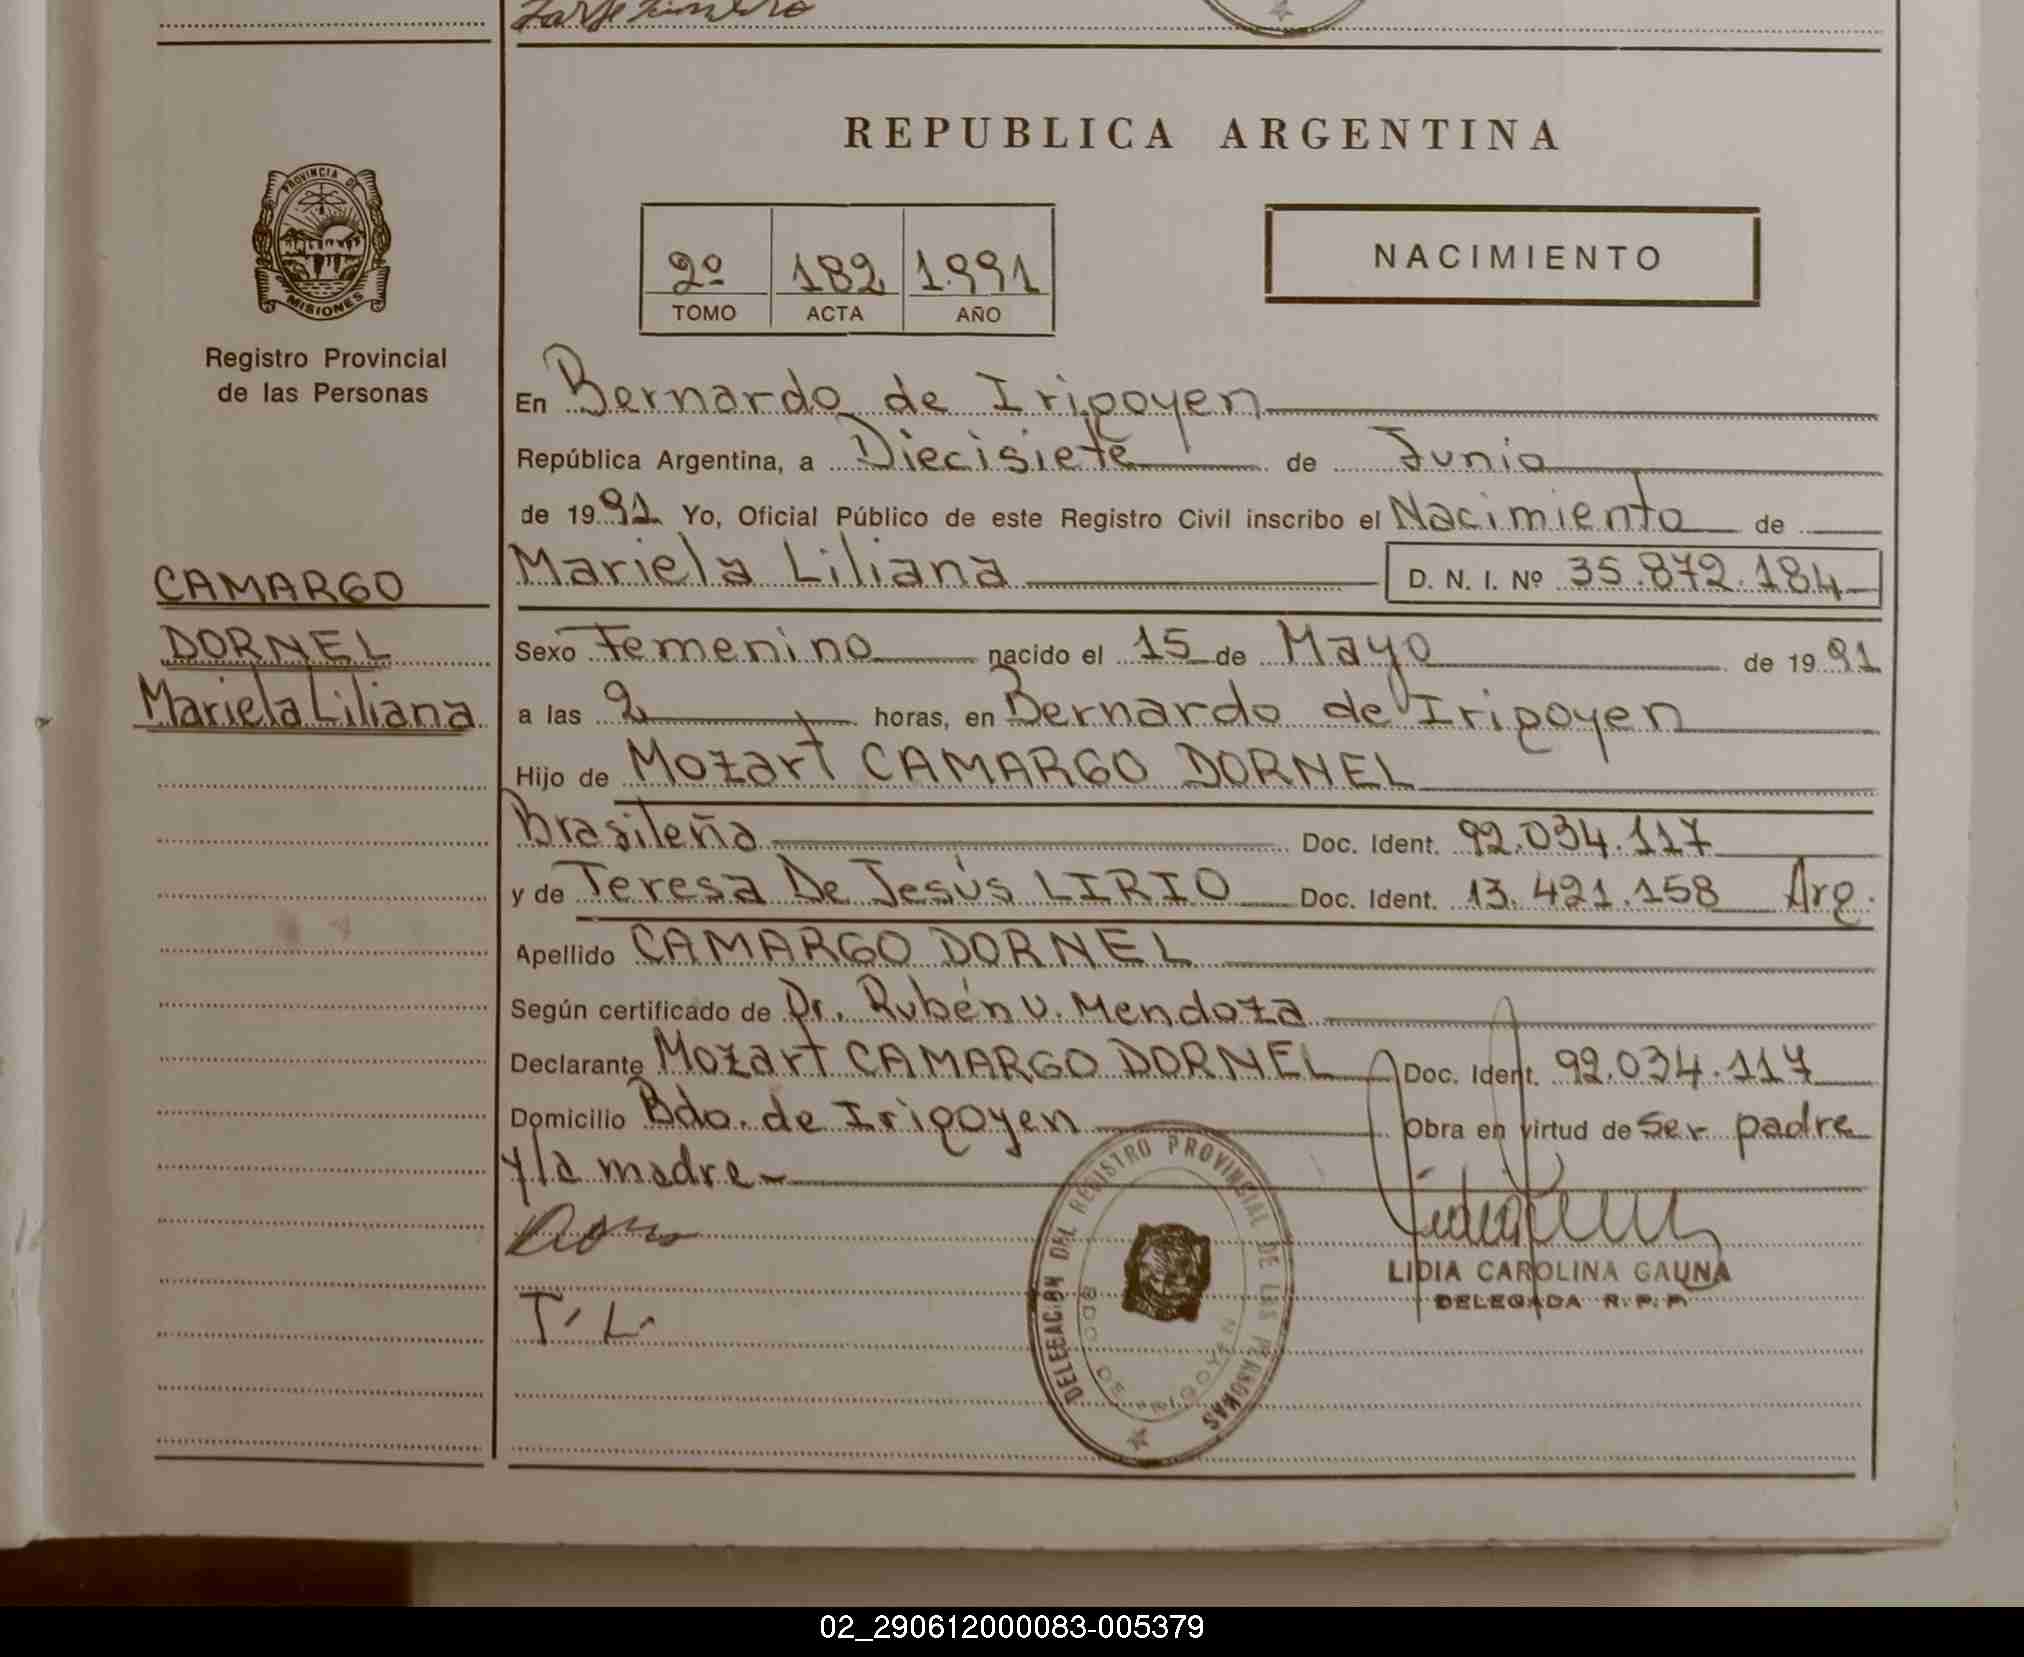 REPUBLICA ARGENTINA
PROVINCIA DE
MISIONES
Registro Provincial
de las Personas
2º 182 1.991
TOMO ACTA AÑO
NACIMIENTO
En Bernardo de Irigoyen
República Argentina, a Diecisiete de Junio
de 1991 Yo, Oficial Público de este Registro Civil inscribo el Nacimiento de
Mariela Liliana D. N. I. Nº 35.872.184
CAMARGO
DORNEL
Mariela Liliana
Sexo Femenino nacido el 15 de Mayo de 1991
a las 2 horas, en Bernardo de Irigoyen
Hijo de Mozart CAMARGO DORNEL
Brasileña Doc. Ident. 92.034.117
y de Teresa De Jesús LIRIO Doc. Ident. 13.421.158 Arg.
Apellido CAMARGO DORNEL
Según certificado de Dr. Rubén U. Mendoza
Declarante Mozart CAMARGO DORNEL Doc. Ident. 92.034.117
Domicilio Bdo. de Irigoyen Obra en virtud de ser padre
y la madre
T. L.
DELEGACION DEL REGISTRO PROVINCIAL DE LAS PERSONAS
BDO. DE IRIGOYEN
LIDIA CAROLINA GAUNA
DELEGADA R. P. P.
02_290612000083-005379